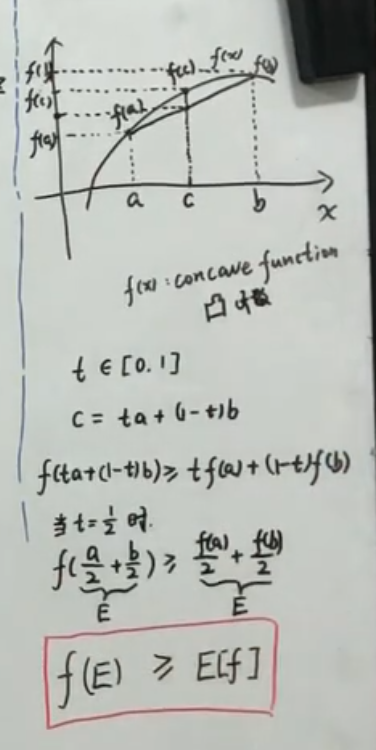 f(b)
f(c)
f(a)
f(a)
f(c)
f(x)
f(b)
a
c
b
x
f(x) : concave function
凸 函数
t ∈ [0.1]
c = ta + (1-t)b
f(ta+(1-t)b) ≥ tf(a) + (1-t)f(b)
当 t=1/2 时.
f(a/2 + b/2) ≥ f(a)/2 + f(b)/2
E E
f(E) ≥ E[f]